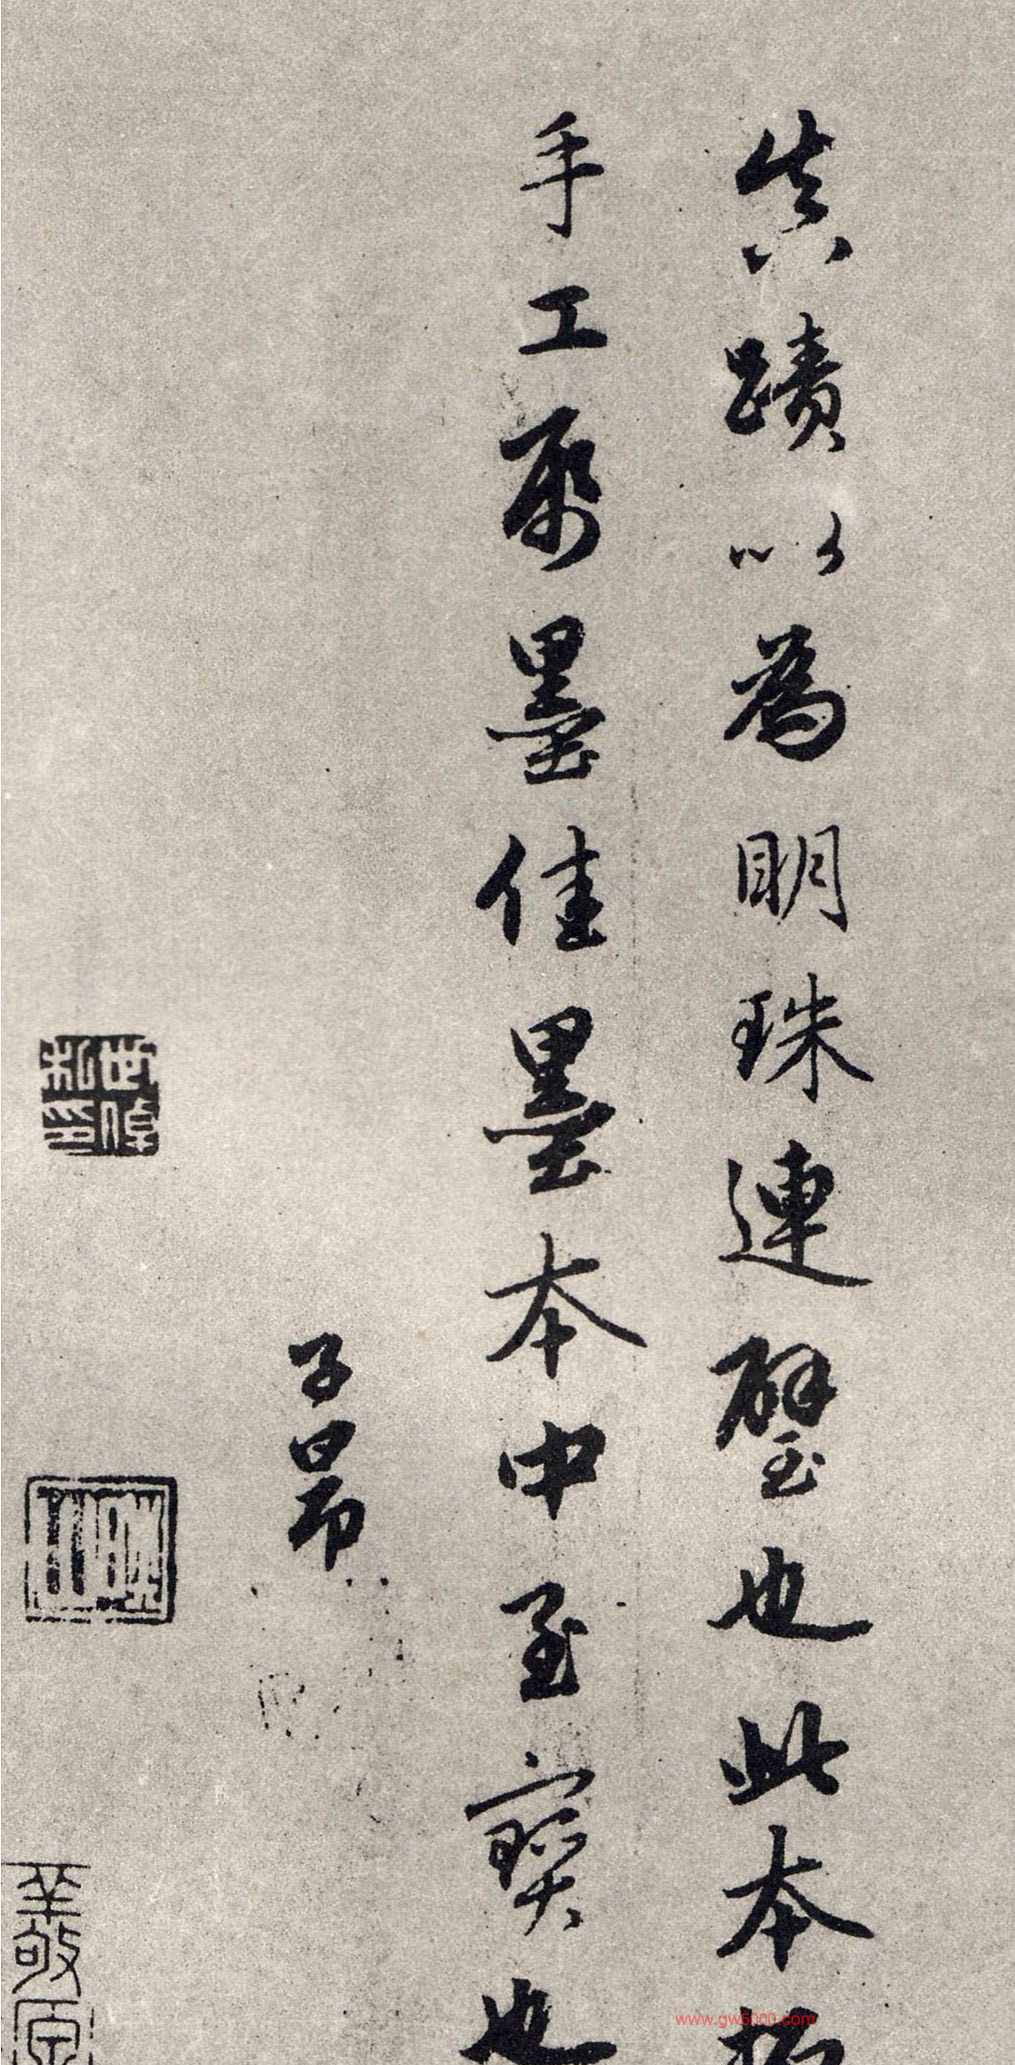 真蹟以為明珠連璧也此本拓
手工紙墨佳墨本中至寶也
子昂
www.gw5000.com